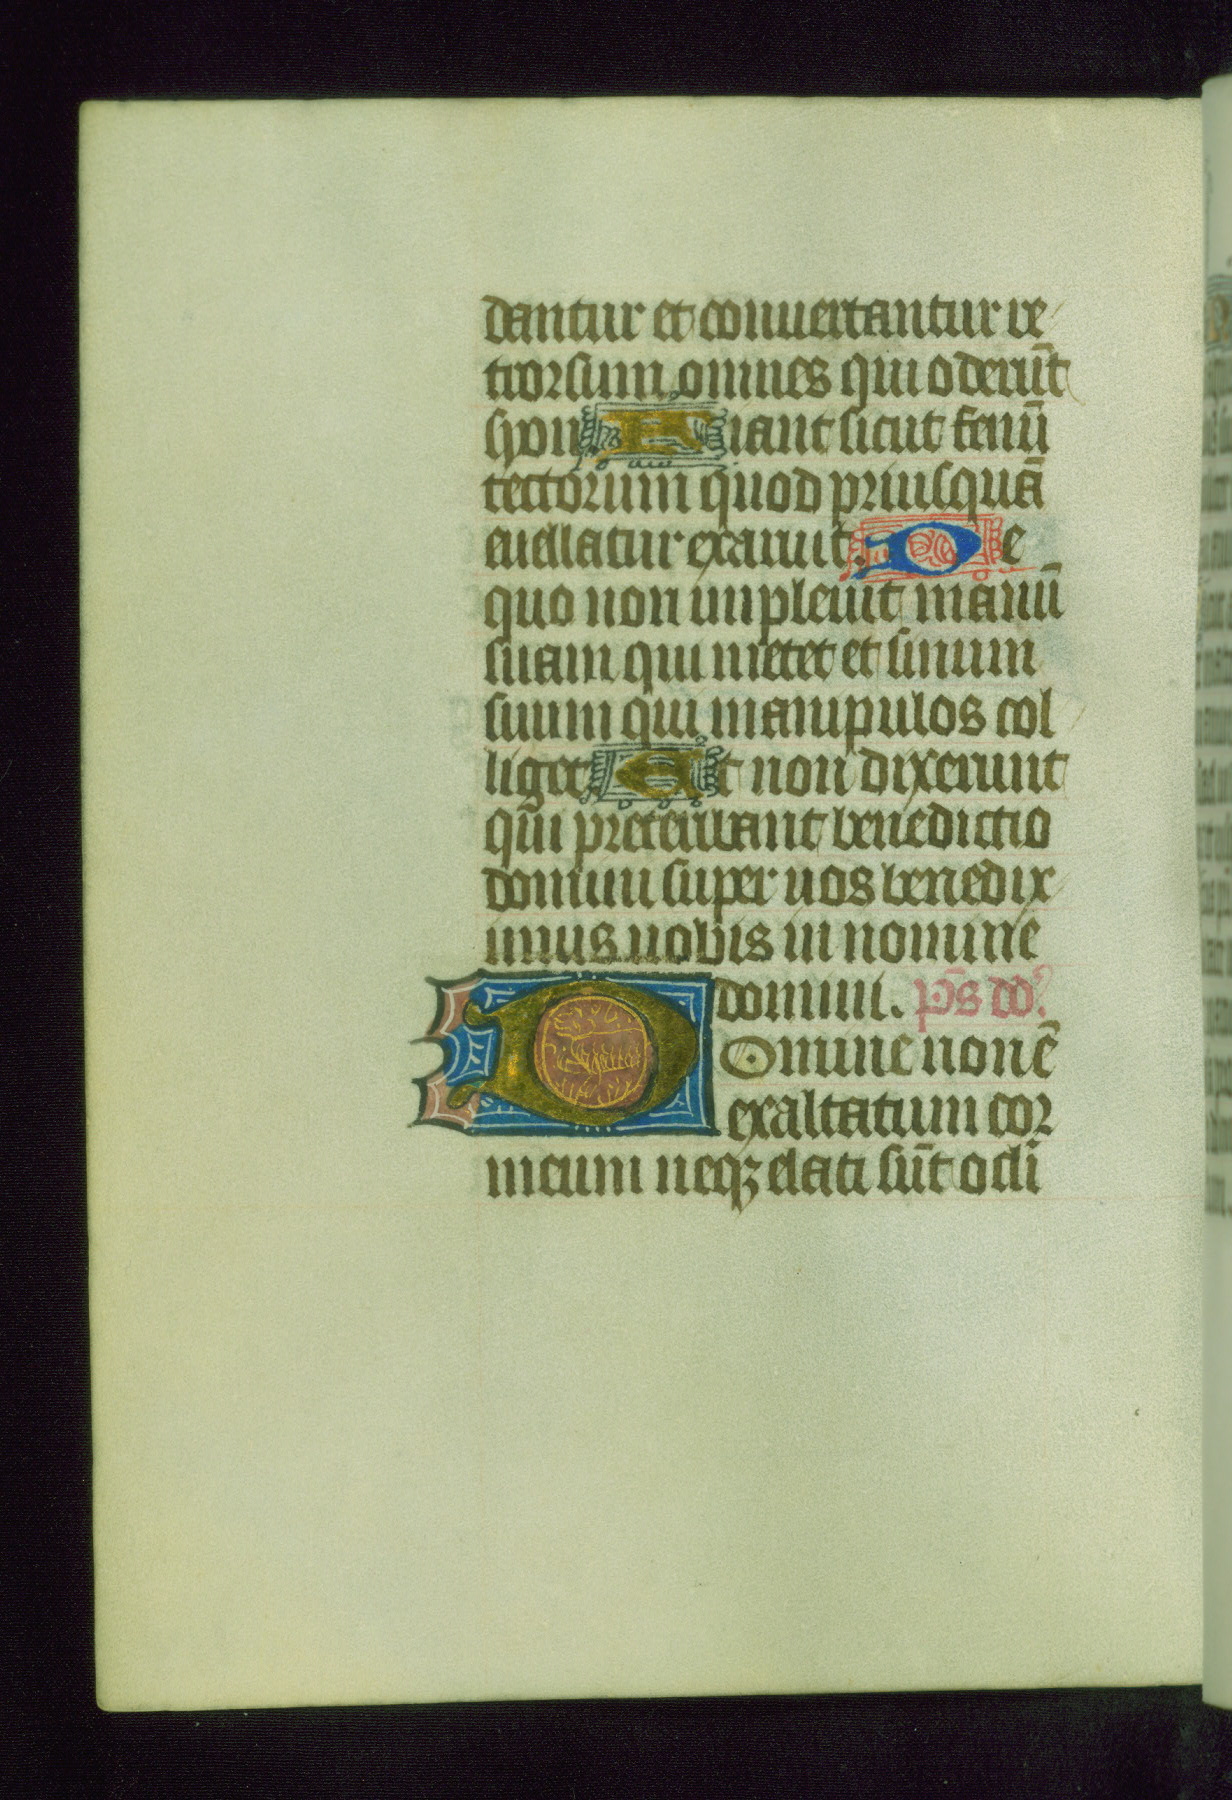 dantur et conuertantur re
trorsum omnes qui oderūt
syon Fiant sicut fenū
tectorum quod priusquā
euellatur exaruit. De
quo non impleuit manū
suam qui metet et sinum
suum qui manipulos col
liget Et non dixerunt
qui preteribant benedictio
domini super uos benedix
imus uobis in nomine
domini. p̄s dd̾
Domine non ē
exaltatum cor
meum neqꝫ elati sūt oc̄li